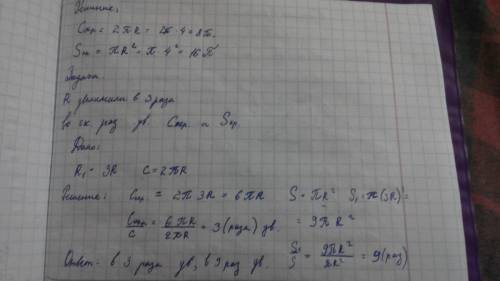 Решение:
Cокр = 2πR = 2π·4 = 8π.
Sкр = πR² = π·4² = 16π
Задача
R увеличили в 3 раза
во ск. раз ув. Cокр. и Sкр.
Дано:
R₁ = 3R C = 2πR
Решение: Cокр = 2π 3R = 6πR S = πR² S₁ = π(3R)² =
= 9πR²
Cокр/C = 6πR/2πR = 3 (раза) ув.
S₁/S = 9πR²/πR² = 9 (раз)
Ответ: в 3 раза ув, в 9 раз ув.